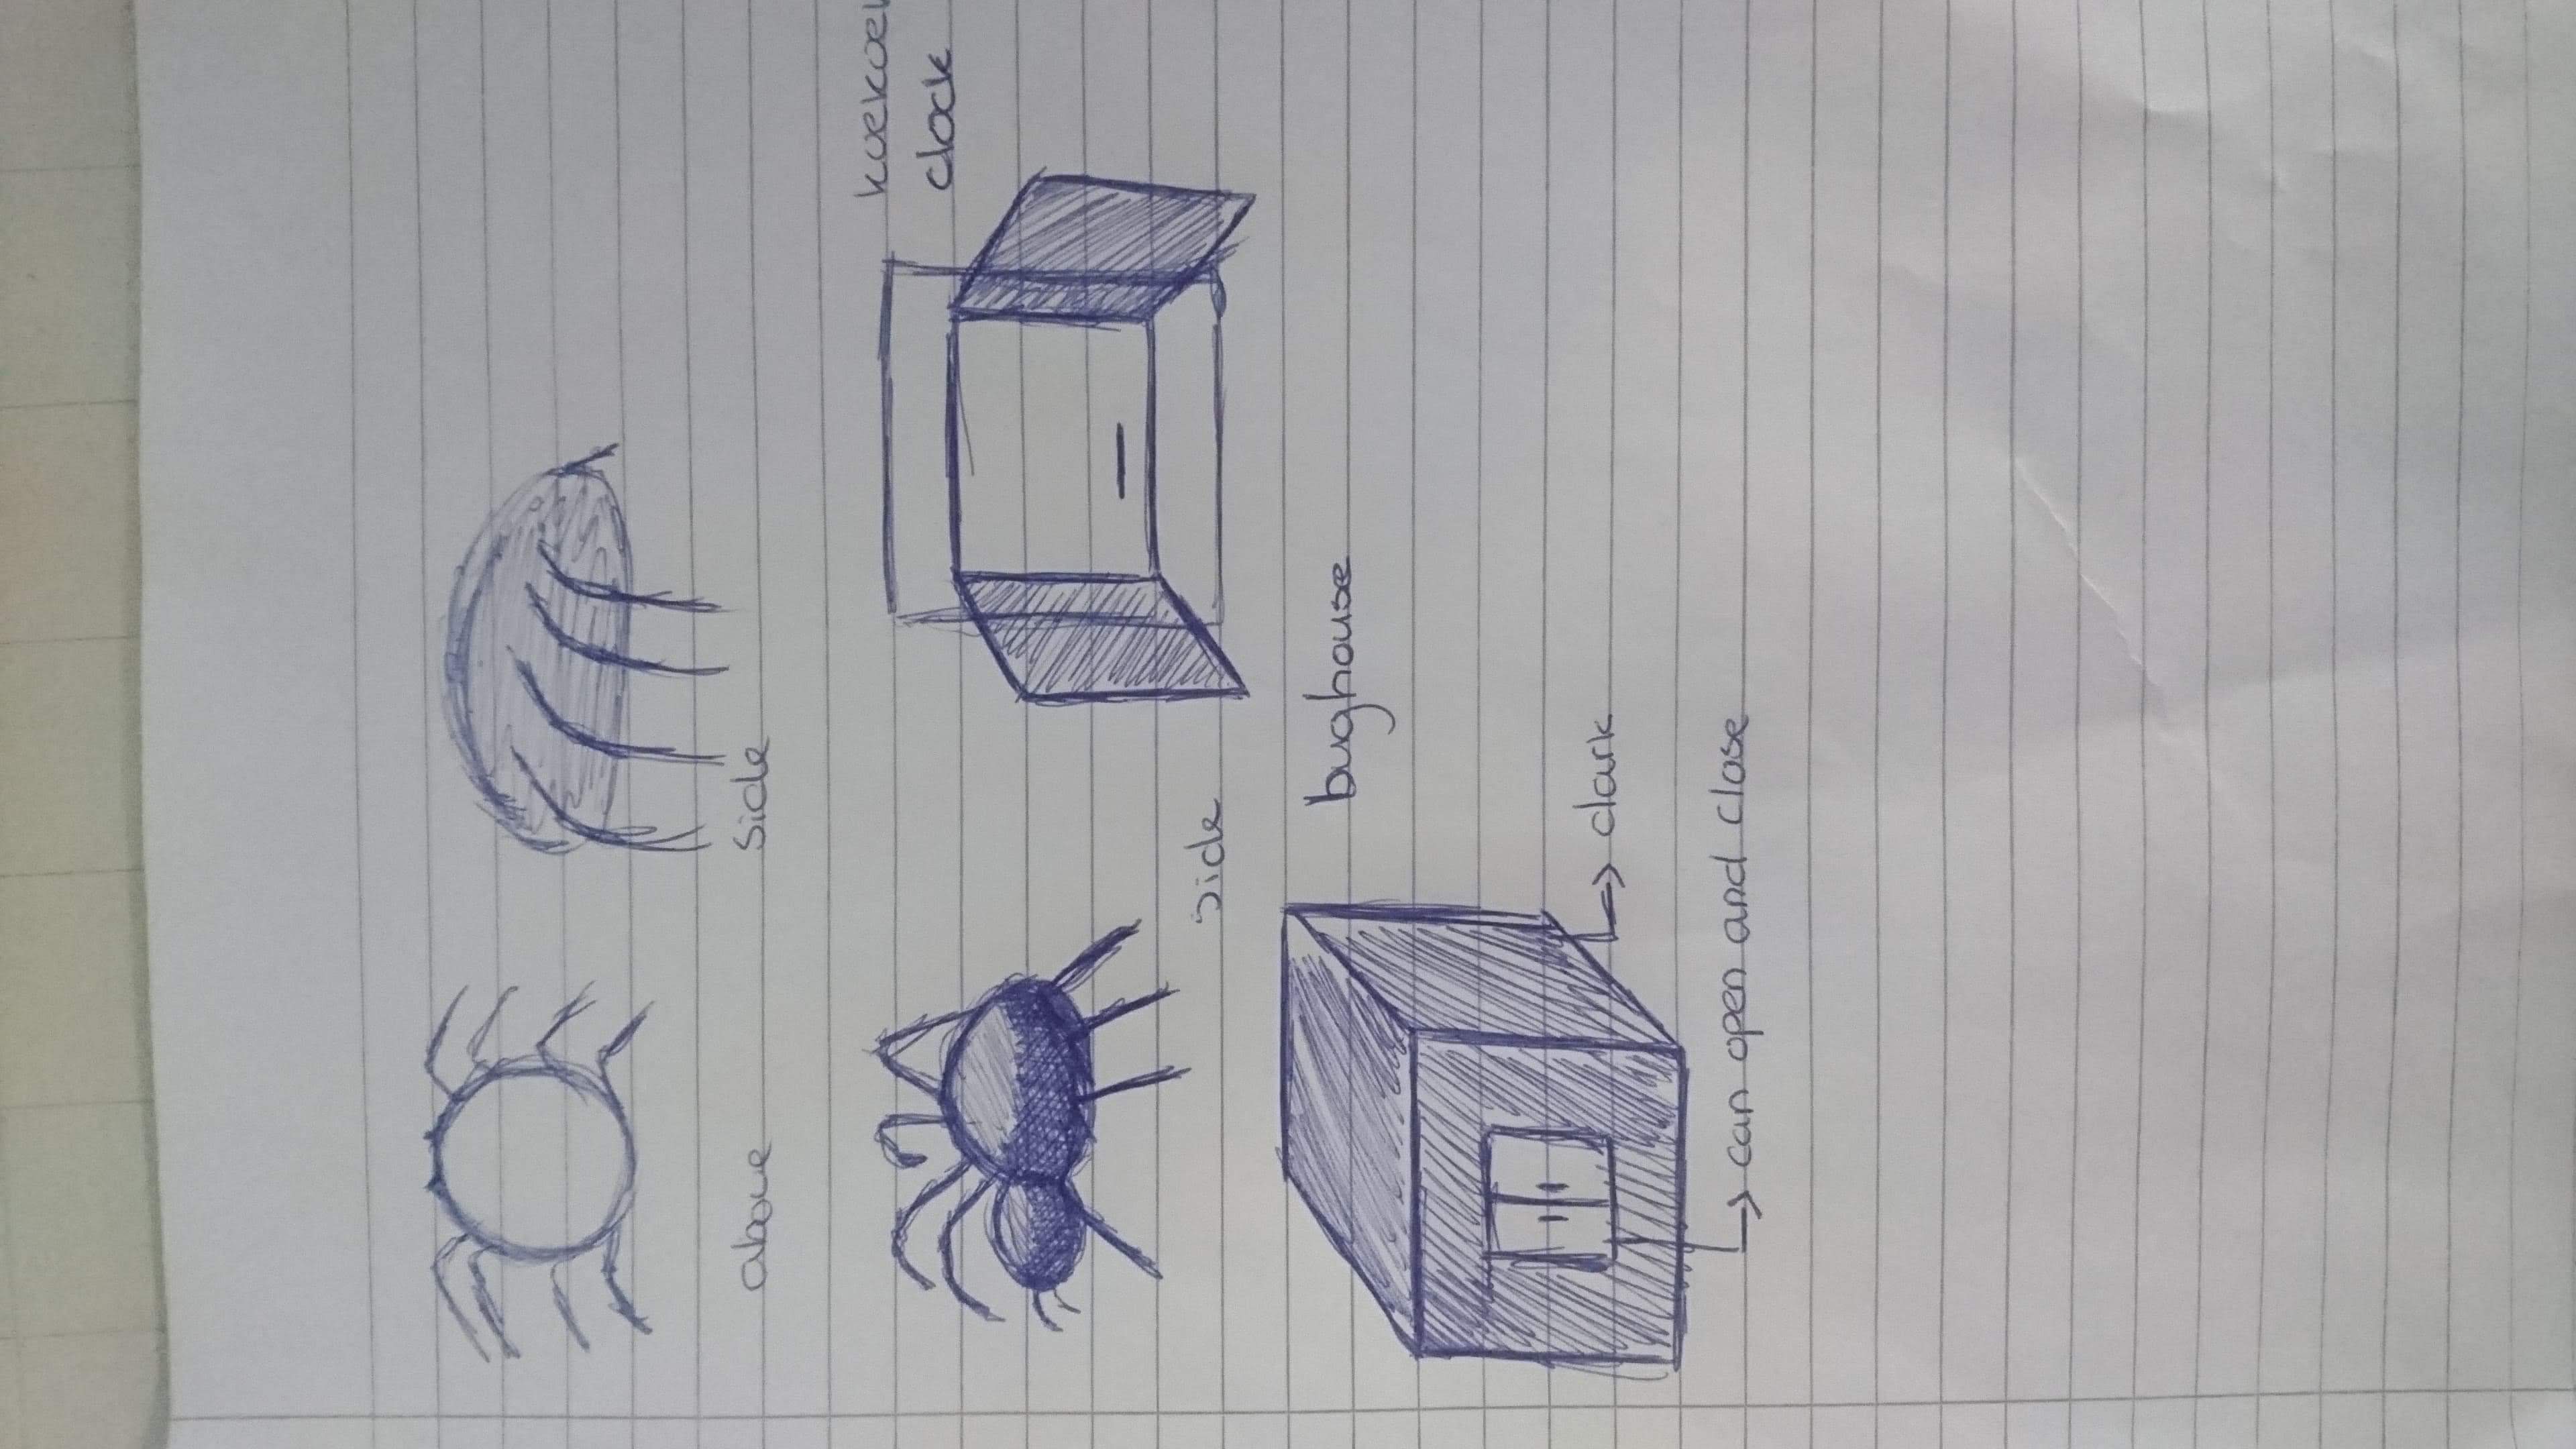 above
side
koekoek
clock
side
bughouse
dark
can open and close